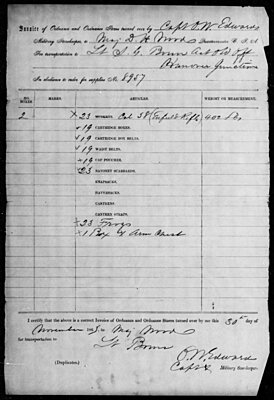 Invoice of Ordnance and Ordnance Stores turned over by Capt O.W. Edwards
Military Storekeeper, to Maj D. H. Wood Quartermaster C. S. A.
For transportation to Lt S. G. Bowen
Hanover Junction
In obedience to order for supplies No. 8957
NO. BOXES. MARKS. ARTICLES. WEIGHT.
2 × 23 MUSKETS, Cal 58 (Enfield Rifle) 402 lbs
× 19 CARTRIDGE BOXES.
× 19 CARTRIDGE BOX BELTS.
× 19 WAIST BELTS.
× 19 CAP POUCHES.
× 23 BAYONET SCABBARDS.
KNAPSACKS.
HAVERSACKS.
CANTEENS.
CANTEEN STRAPS.
× 23 Frogs
× 1 Box & Arm Chest
I certify that the above is a correct Invoice of Ordnance and Ordnance Stores turned over by me this 30th day of
November to Maj Wood
for transportation to Lt Bowen
O. W. Edwards
(Duplicates.) Capt & Military Storekeeper.